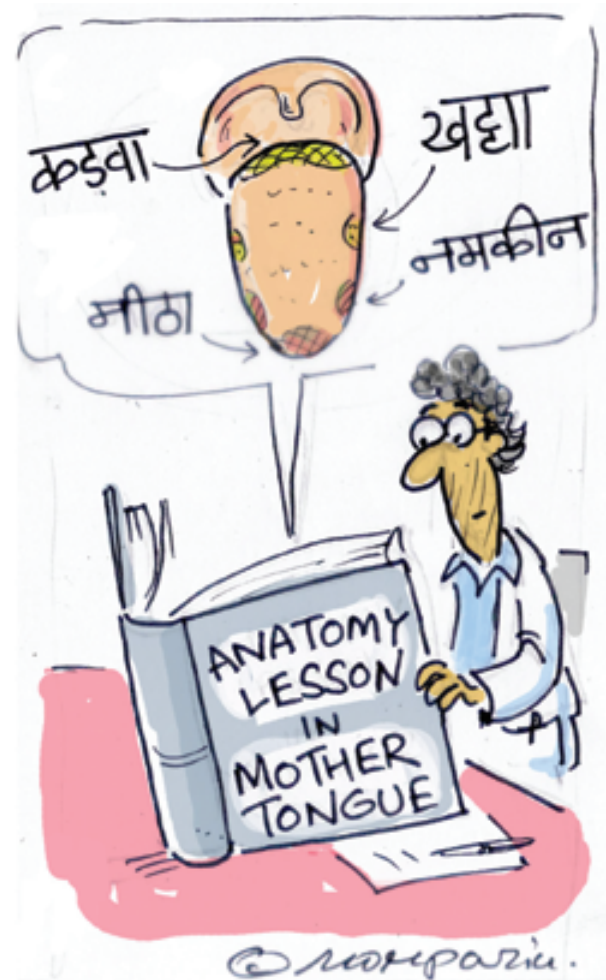 कड़वा
खट्टा
नमकीन
मीठा
ANATOMY
LESSON
IN
MOTHER
TONGUE